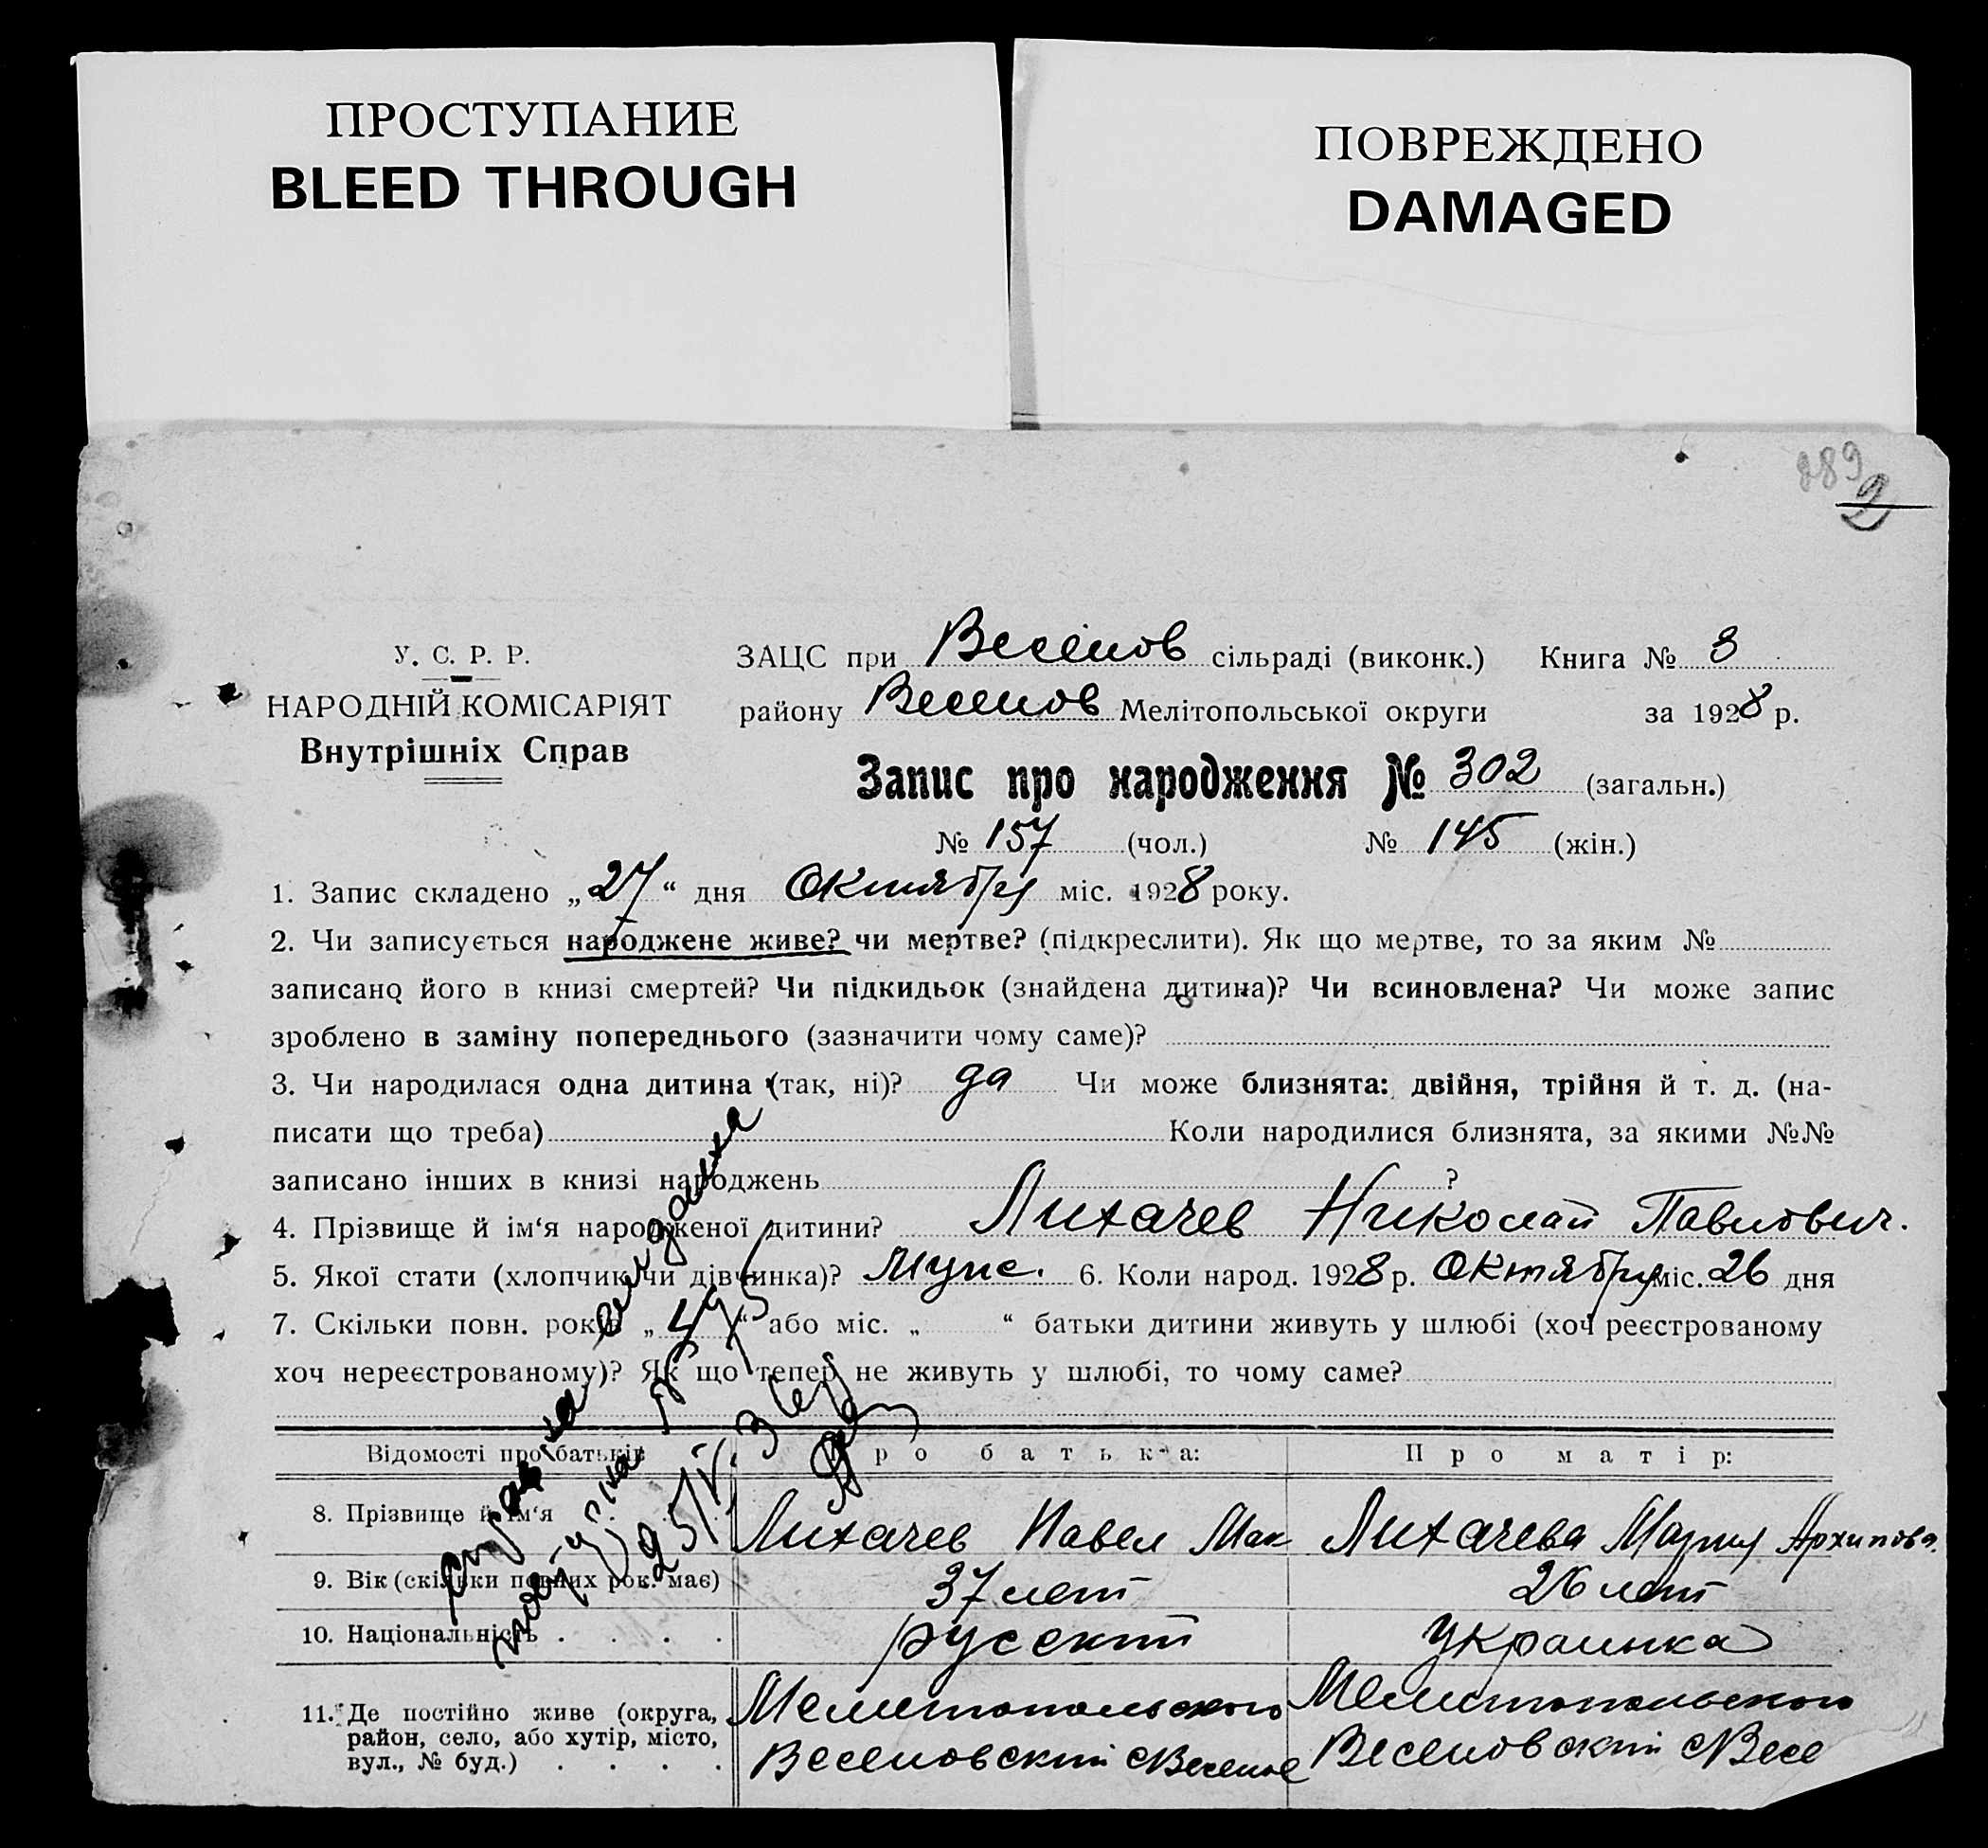 ПРОСТУПАНИЕ
BLEED THROUGH
ПОВРЕЖДЕНО
DAMAGED
289
2
У. С. Р. Р.
НАРОДНІЙ КОМІСАРІЯТ
Внутрішніх Справ
ЗАЦС при Веселов сільраді (виконк.) Книга № 3
району Веселов Мелітопольської округи за 1928 р.
Запис про народження № 302 (загальн.)
№ 157 (чол.) № 145 (жін.)
1. Запис складено „27“ дня Октября міс. 1928 року.
2. Чи записується народжене живе? чи мертве? (підкреслити). Як що мертве, то за яким №
записано його в книзі смертей? Чи підкидьок (знайдена дитина)? Чи всиновлена? Чи може запис
зроблено в заміну попереднього (зазначити чому саме)?
3. Чи народилася одна дитина (так, ні)? да Чи може близнята: двійня, трійня й т. д. (на-
писати що треба) Коли народилися близнята, за якими №№
записано інших в книзі народжень ?
4. Прізвище й ім‘я народженої дитини? Лихачев Николай Павлович.
5. Якої стати (хлопчик чи дівчинка)? Мужс. 6. Коли народ. 1928 р. Октября міс. 26 дня
7. Скільки повн. років „4“ або міс. „ “ батьки дитини живуть у шлюбі (хоч реєстрованому
хоч нереєстрованому)? Як що тепер не живуть у шлюбі, то чому саме?
Відомості про батьків Про батька: Про матір:
8. Прізвище й ім‘я Лихачев Павел Мак Лихачева Мария Архипова.
9. Вік (скільки повних рок. має) 37 лет 26 лет
10. Національність русский Украинка
11. Де постійно живе (округа, район, село, або хутір, місто, вул., № буд.) Мелитопольского Мелитопольского
Веселовский с Веселое Веселовский с Весе